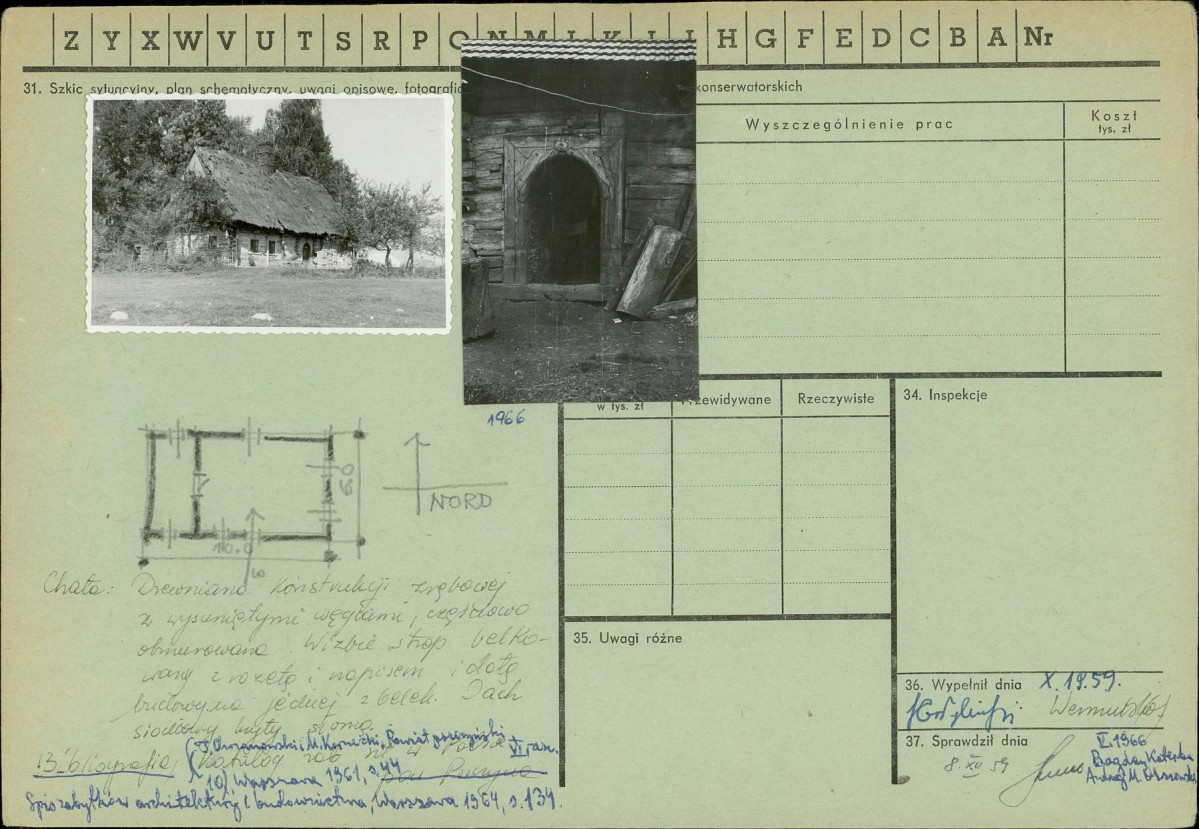 Z Y X W V U T S R P O N M L K J I H G F E D C B A Nr
31. Szkic sytuacyjny, plan schematyczny, uwagi opisowe, fotografia
konserwatorskich
Wyszczególnienie prac
Koszt
tys. zł
1966
w tys. zł
Przewidywane
Rzeczywiste
34. Inspekcje
6.0
NORD
10.0
Chata: Drewniana konstrukcji zrębowej
z wysuniętymi węgłami, częściowo
obmurowana. W izbie strop belko-
wany z rozetą i napisem i datą
budowy na jednej z belek. Dach
siodłowy kryty słomą
Bibliografia: (T. Chrzanowski, M. Kornecki, Powiat
Katalog
VI
10, Warszawa 1961, s. 44
Spis zabytków architektury i budownictwa, Warszawa 1964, s. 134.
35. Uwagi różne
36. Wypełnił dnia X.1959.
37. Sprawdził dnia
8.XII 59
V.1966
Bogdan
Andrzej M. Olszewski